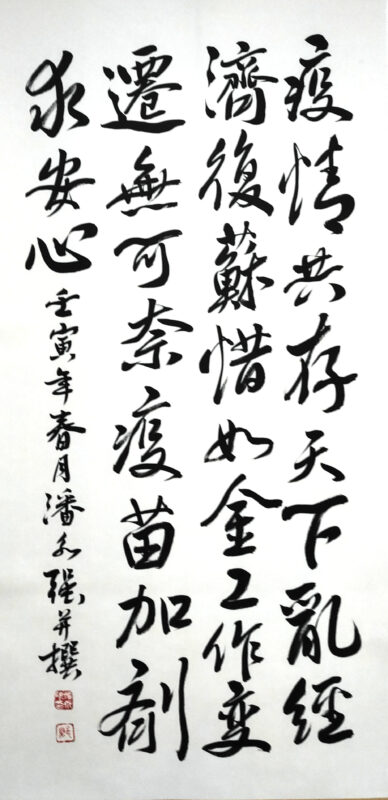 疫情共存天下亂經
濟復蘇惜如金工作变
遷無可奈疫苗加劑
求安心
壬寅年春月潘强并撰